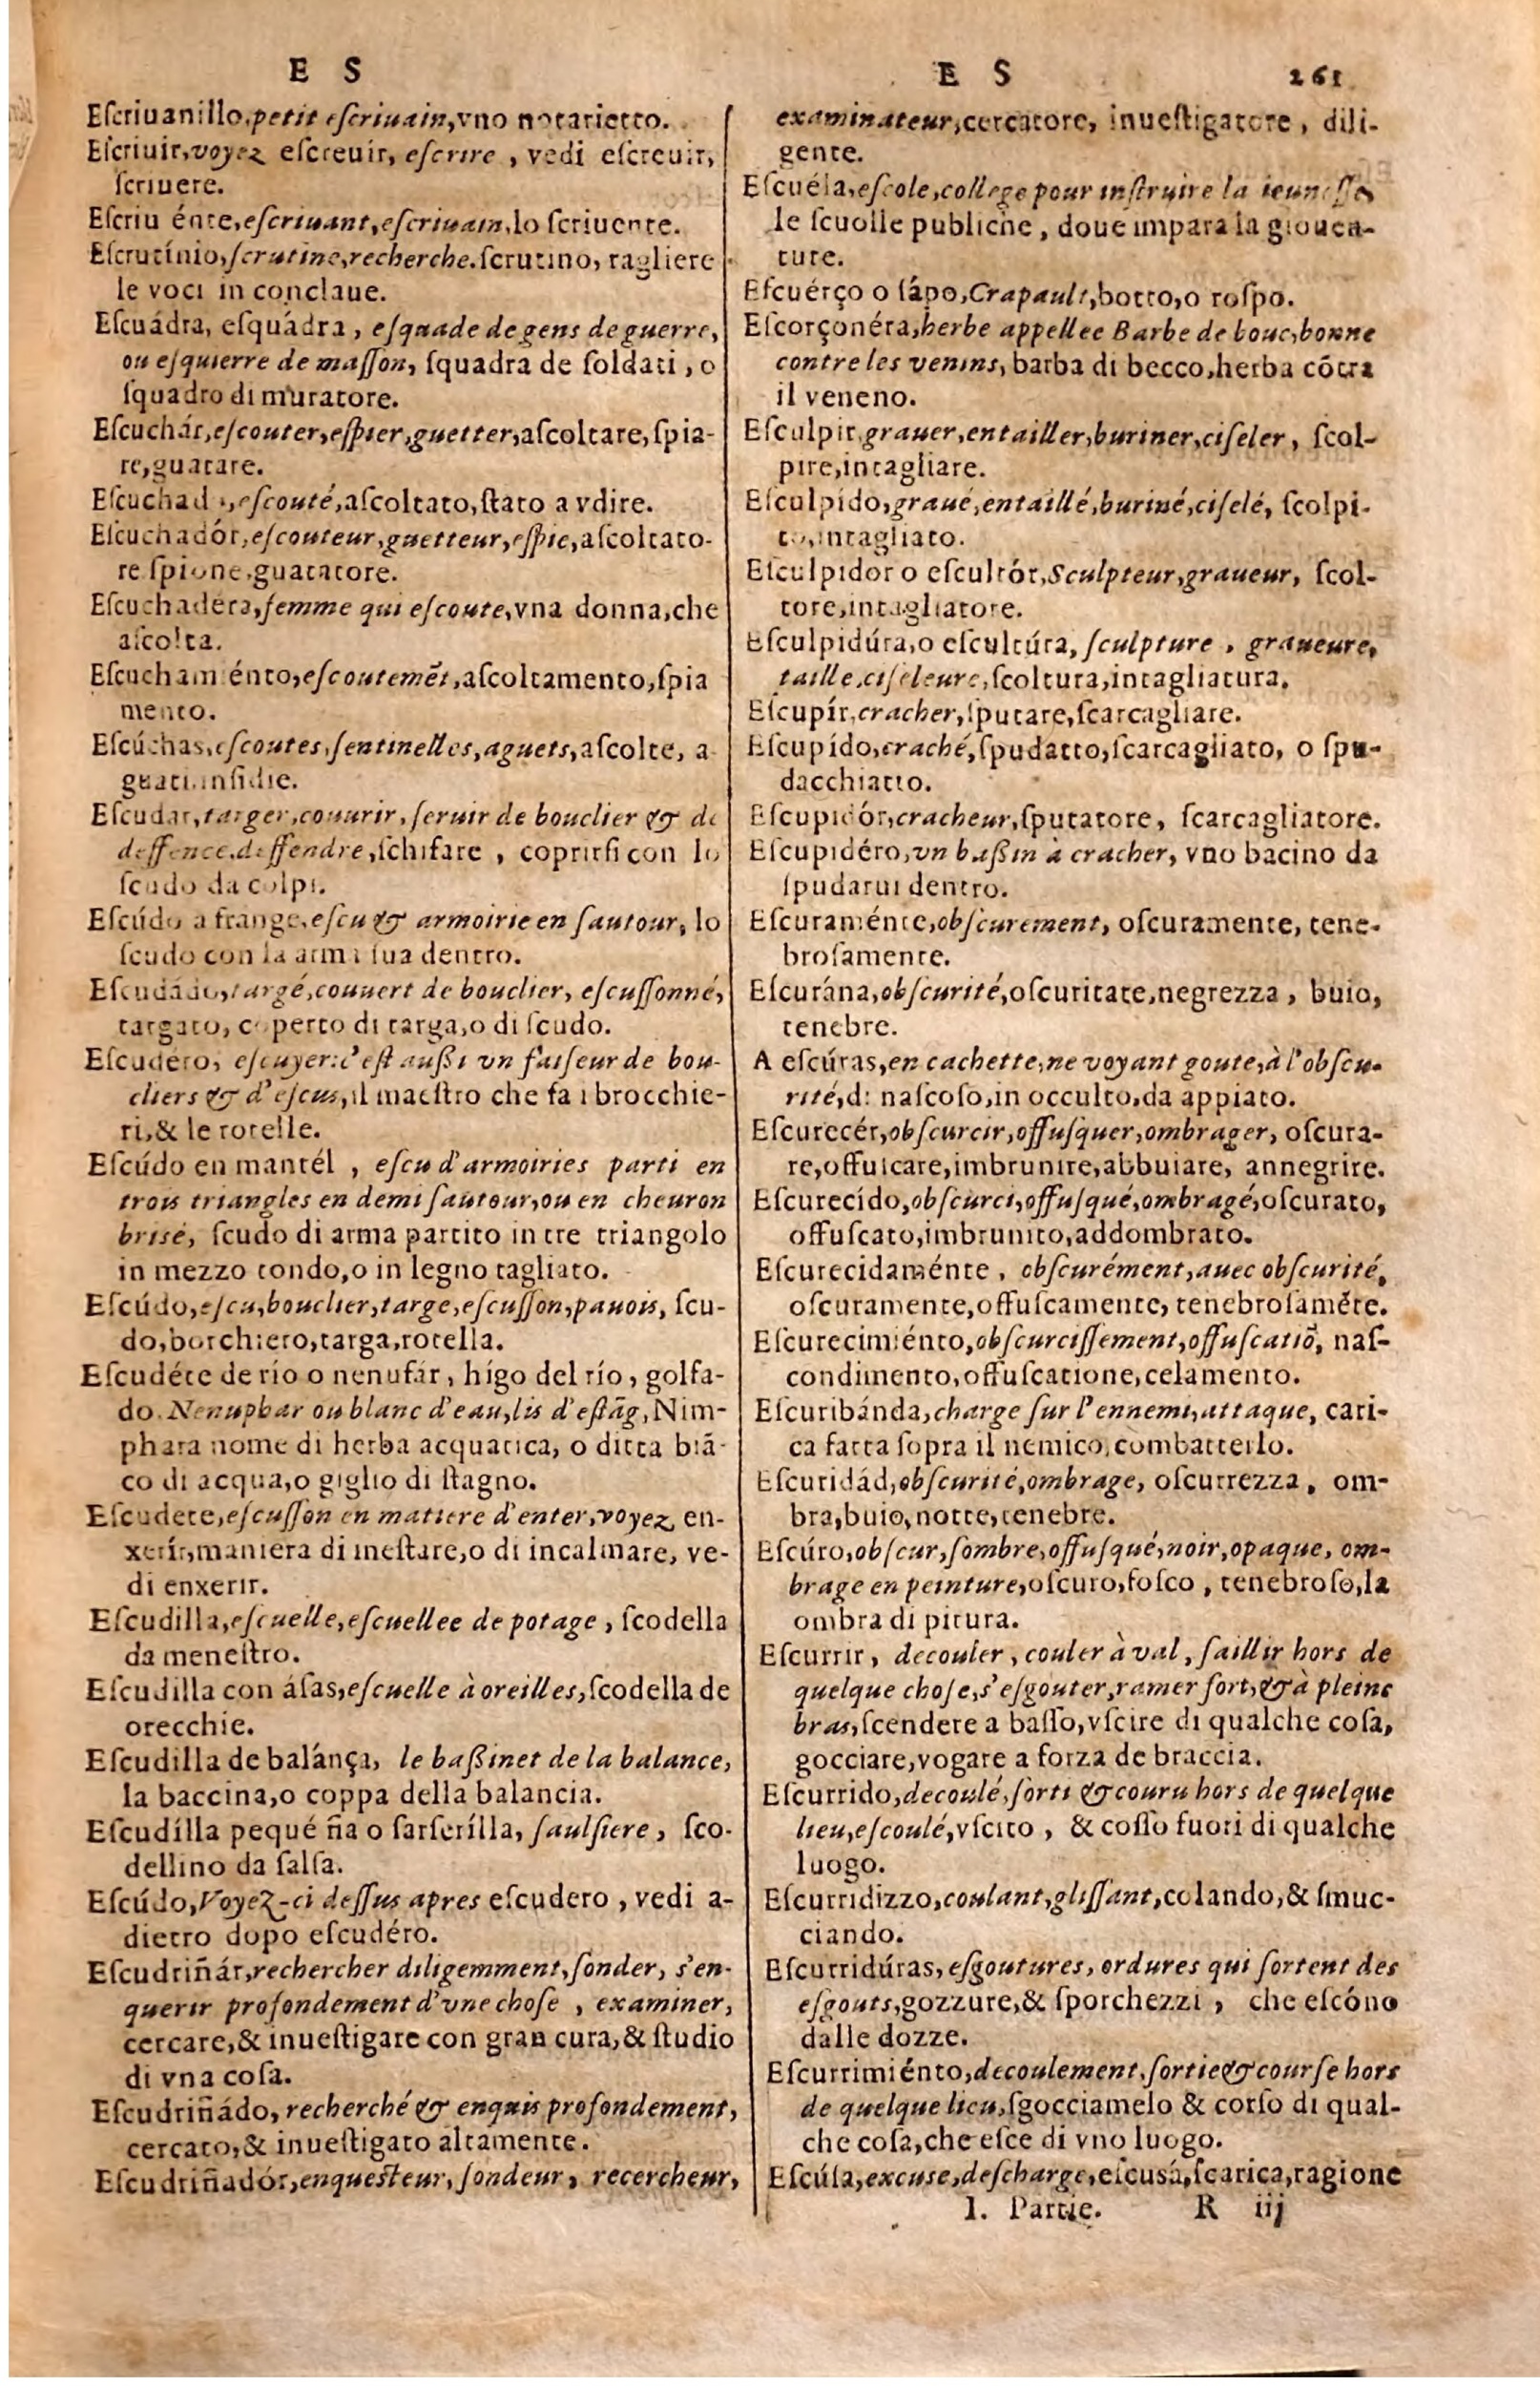 E S
Eſcriuanillo, petit eſcriuain, vno notarietto.
Eſcriuir, voyez eſcreuir, eſcrire, vedi eſcreuir,
ſcriuere.
Eſcriu énte, eſcriuant, eſcriuain, lo ſcriuente.
Eſcrutínio, ſcrutine, recherche. ſcrutino, ragliere
le voci in conclaue.
Eſcuádra, eſquádra, eſquade de gens de guerre,
ou eſquierre de maſſon, ſquadra de ſoldati, o
ſquadro di muratore.
Eſcuchár, eſcouter, eſpier, guetter, aſcoltare, ſpia-
re, guatare.
eſcouté, aſcoltato, ſtato a vdire.
Eſcuchadór, eſcouteur, guetteur, eſpie, aſcoltato-
re ſpione, guatatore.
Eſcuchadera, femme qui eſcoute, vna donna, che
aſcolta.
Eſcucham énto, eſcoutemēt, aſcoltamento, ſpia
mento.
Eſcúchas, eſcoutes, ſentinelles, aguets, aſcolte, a
guati, inſidie.
Eſcudar, targer, couurir, ſeruir de bouclier & de
deffence, deffendre, ſchifare, coprirſi con lo
ſcudo da colpi.
Eſcúdo a frange, eſcu & armoirie en ſautour, lo
ſcudo con la arma ſua dentro.
Eſcudádo, targé, couuert de bouclier, eſcuſſonné,
targato, coperto di targa, o di ſcudo.
Eſcudero, eſcuyer: c'eſt außi vn faiſeur de bou-
cliers & d'eſcus, il maeſtro che fa i brocchie-
ri, & le rotelle.
Eſcúdo en mantél, eſcu d'armoiries parti en
trois triangles en demi ſautour, ou en cheuron
brisé, ſcudo di arma partito in tre triangolo
in mezzo tondo, o in legno tagliato.
Eſcúdo, eſcu, bouclier, targe, eſcuſſon, pauois, ſcu-
do, borchiero, targa, rotella.
Eſcudéte de río o nenufár, hígo del río, golfa-
do. Nenuphar ou blanc d'eau, lis d'eſtāg, Nim-
phara nome di herba acquatica, o ditta biā-
co di acqua, o giglio di ſtagno.
Eſcudete, eſcuſſon en matiere d'enter, voyez en-
xerír, maniera di ineſtare, o di incalmare, ve-
di enxerir.
Eſcudilla, eſcuelle, eſcuellee de potage, ſcodella
da meneſtro.
Eſcudilla con áſas, eſcuelle à oreilles, ſcodella de
orecchie.
Eſcudilla de balánça, le baßinet de la balance,
la baccina, o coppa della balancia.
Eſcudílla pequé ña o ſarſerílla, ſaulſiere, ſco-
dellino da ſalſa.
Eſcúdo, Voyez-ci deſſus apres eſcudero, vedi a-
dietro dopo eſcudéro.
Eſcudriñár, rechercher diligemment, ſonder, s'en-
querir profondement d'vne choſe, examiner,
cercare, & inueſtigare con gran cura, & ſtudio
di vna coſa.
Eſcudriñádo, recherché & enquis profondement,
cercato, & inueſtigato altamente.
Eſcudriñadór, enqueſteur, ſondeur, recercheur,
E S 261
examinateur, cercatore, inueſtigatore, dili-
gente.
Eſcuéla, eſcole, college pour inſtruire la ieuneſſe,
le ſcuolle publiche, doue impara la giouen-
ture.
Eſcuérço o ſápo, Crapault, botto, o roſpo.
Eſcorçonéra, herbe appellee Barbe de bouc, bonne
contre les venins, barba di becco, herba cōtra
il veneno.
Eſculpir, grauer, entailler, buriner, ciſeler, ſcol-
pire, intagliare.
Eſculpído, graué, entaillé, buriné, ciſelé, ſcolpi-
to, intagliato.
Eſculpidor o eſcultór, Sculpteur, graueur, ſcol-
tore, intagliatore.
Eſculpidúra, o eſcultúra, ſculpture, graueure,
taille, ciſeleure, ſcoltura, intagliatura.
Eſcupír, cracher, ſputare, ſcarcagliare.
Eſcupído, craché, ſpudatto, ſcarcagliato, o ſpu-
dacchiatto.
Eſcupidór, cracheur, ſputatore, ſcarcagliatore.
Eſcupidéro, vn baßin à cracher, vno bacino da
ſpudarui dentro.
Eſcuraménte, obſcurement, oſcuramente, tene-
broſamente.
Eſcurána, obſcurité, oſcuritate, negrezza, buio,
tenebre.
A eſcúras, en cachette, ne voyant goute, à l'obſcu-
rité, di naſcoſo, in occulto, da appiato.
Eſcurecér, obſcurcir, offuſquer, ombrager, oſcura-
re, offuſcare, imbrunire, abbuiare, annegrire.
Eſcurecído, obſcurci, offuſqué, ombragé, oſcurato,
offuſcato, imbrunito, addombrato.
Eſcurecidaménte, obſcurément, auec obſcurité,
oſcuramente, offuſcamente, tenebroſamēte.
Eſcurecimiénto, obſcurciſſement, offuſcatiō, naſ-
condimento, offuſcatione, celamento.
Eſcuribánda, charge ſur l'ennemi, attaque, cari-
ca fatta ſopra il nemico, combatterlo.
Eſcuridád, obſcurité, ombrage, oſcurrezza, om-
bra, buio, notte, tenebre.
Eſcúro, obſcur, ſombre, offuſqué, noir, opaque, om-
brage en peinture, oſcuro, foſco, tenebroſo, la
ombra di pitura.
Eſcurrir, decouler, couler à val, ſaillir hors de
quelque choſe, s'eſgouter, ramer fort, & à pleins
bras, ſcendere a baſſo, vſcire di qualche coſa,
gocciare, vogare a forza de braccia.
Eſcurrido, decoulé, ſorti & couru hors de quelque
lieu, eſcoulé, vſcito, & coſſo fuori di qualche
luogo.
Eſcurridizzo, coulant, gliſſant, colando, & ſmuc-
ciando.
Eſcurridúras, eſgoutures, ordures qui ſortent des
eſgouts, gozzure, & ſporchezzi, che eſcóno
dalle dozze.
Eſcurrimiénto, decoulement, ſortie & courſe hors
de quelque lieu, ſgocciamelo & corſo di qual-
che coſa, che eſce di vno luogo.
Eſcúſa, excuse, deſcharge, eſcusá, ſcarica, ragione
I. Partie. R iij